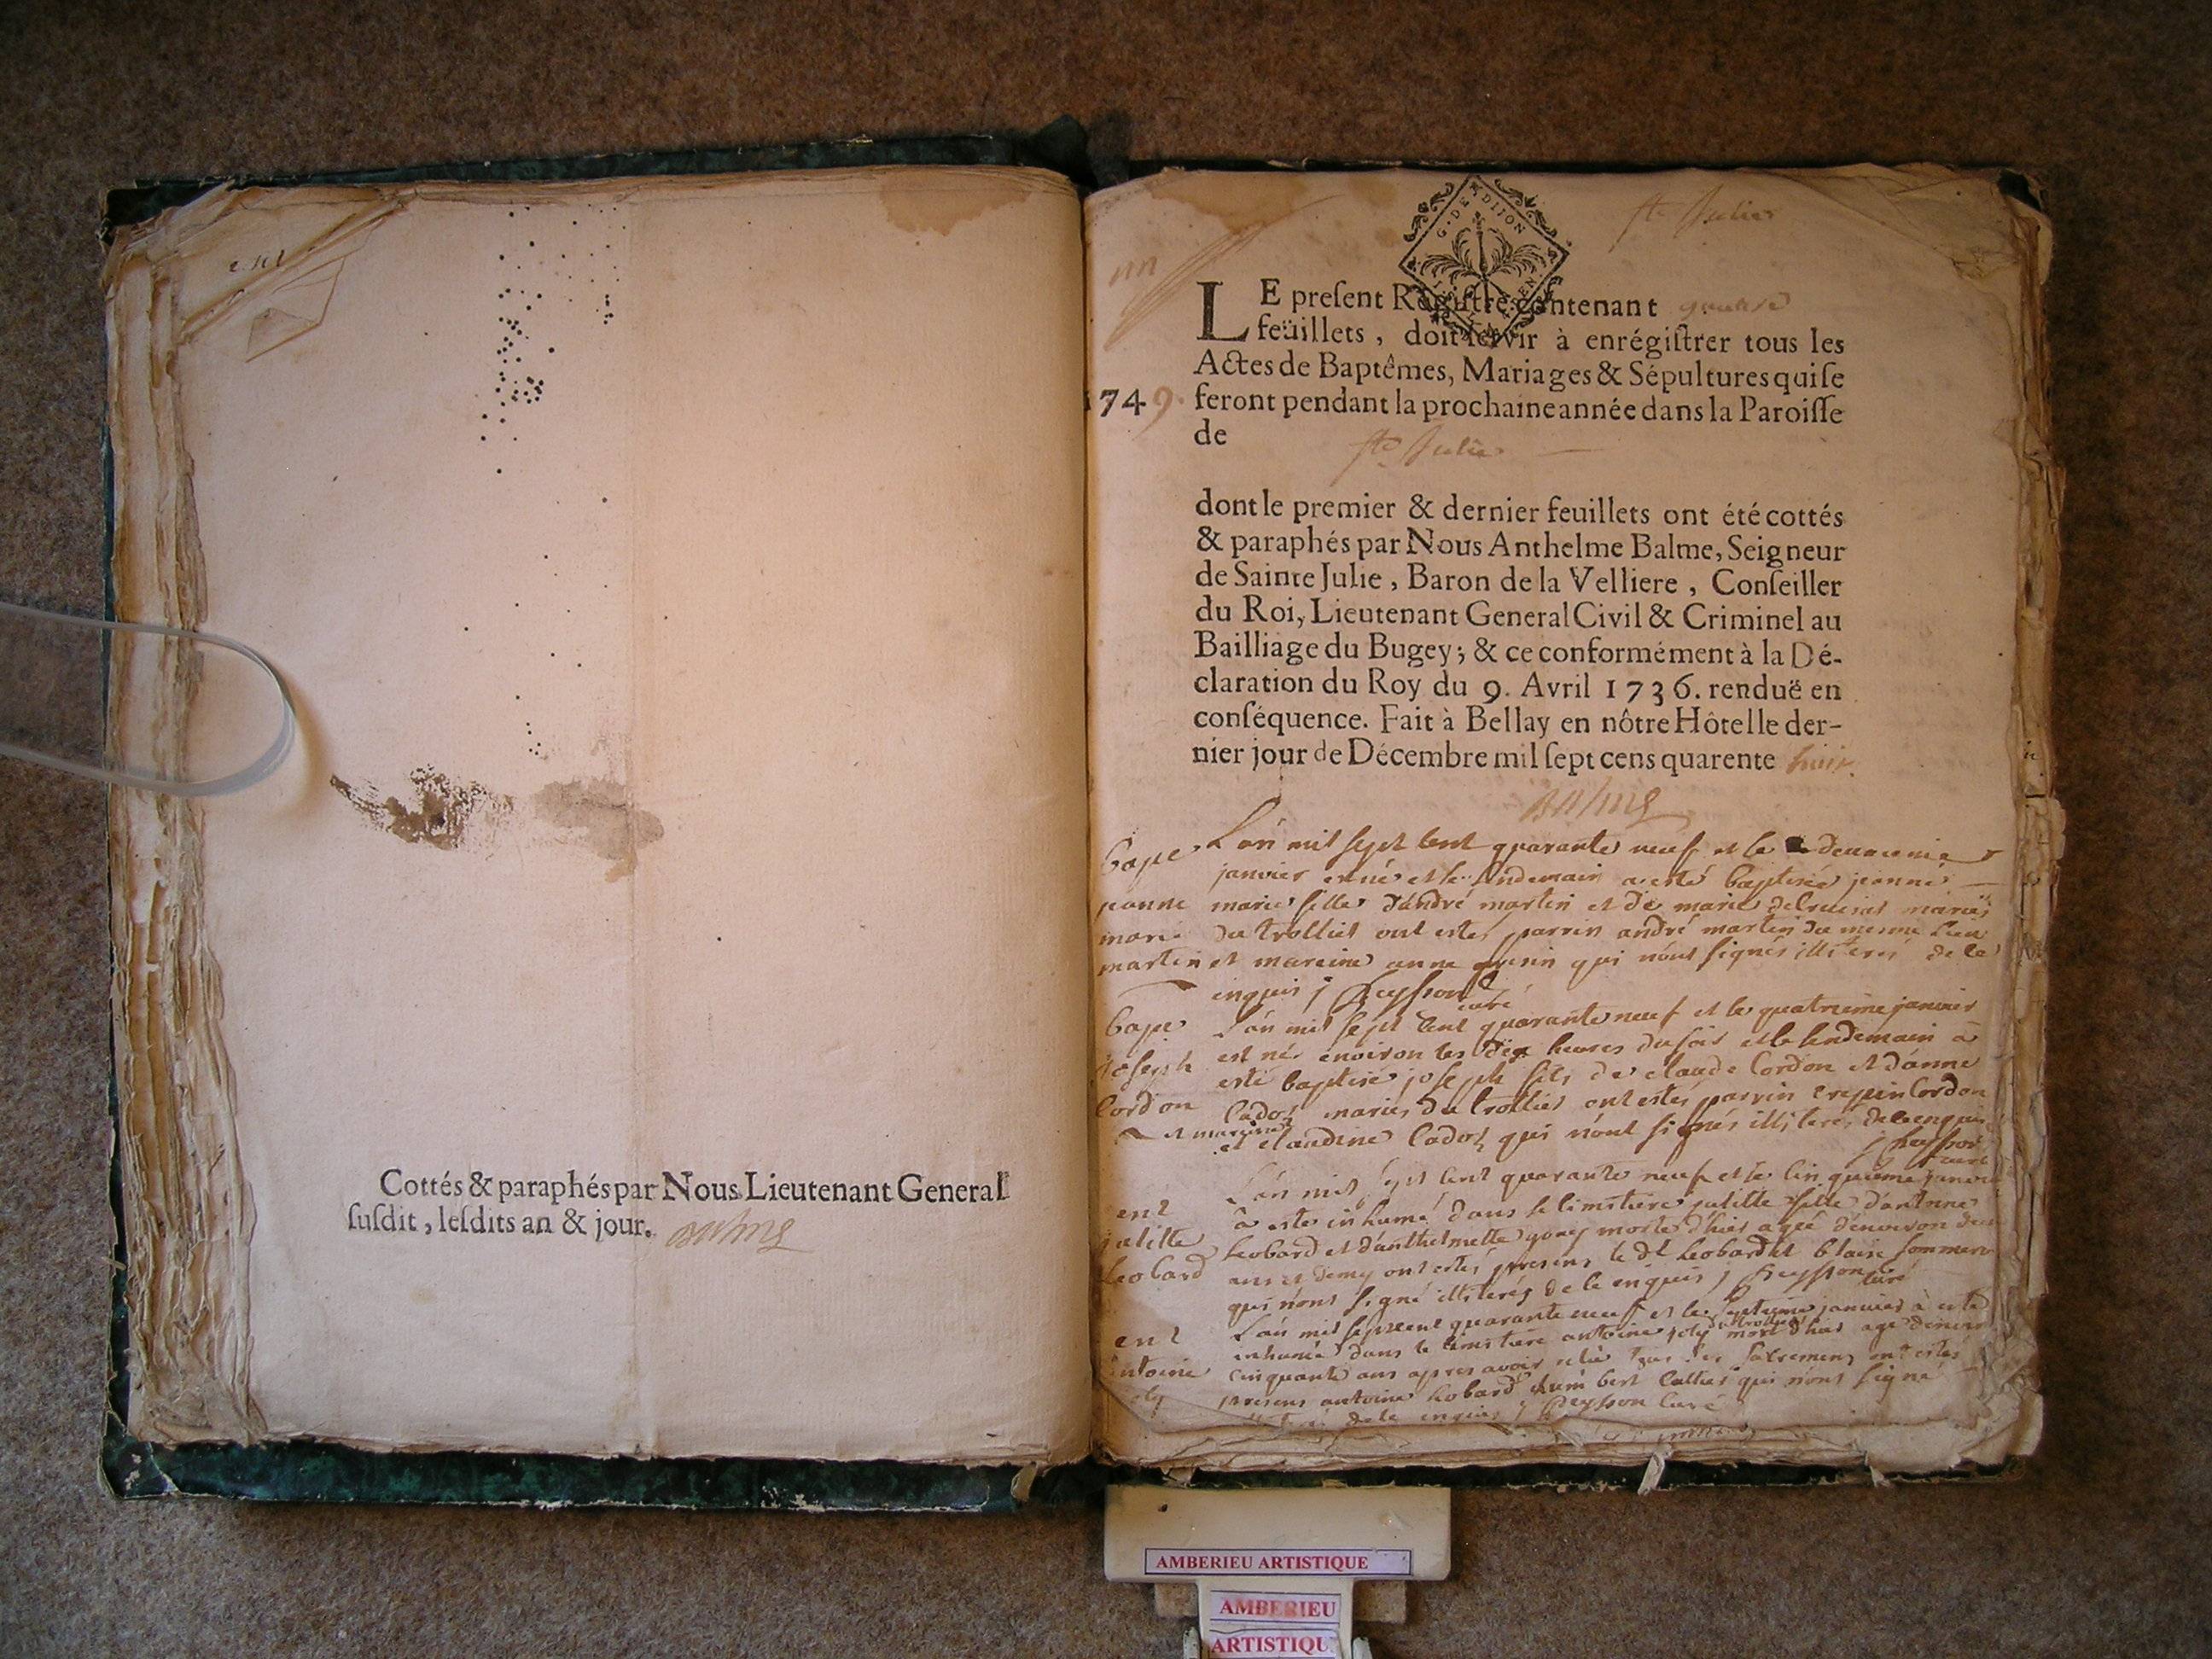 Cottés & paraphés par Nous Lieutenant General
susdit, lesdits an & jour. Balme
G. DE DIJON
Ste Julie
LE present Registre contenant
feüillets, doit servir à enrégistrer tous les
Actes de Baptêmes, Mariages & Sépultures qui se
1749. feront pendant la prochaine année dans la Paroisse
de
Ste Julie
dont le premier & dernier feuillets ont été cottés
& paraphés par Nous Anthelme Balme, Seigneur
de Sainte Julie, Baron de la Velliere, Conseiller
du Roi, Lieutenant General Civil & Criminel au
Bailliage du Bugey; & ce conformément à la Dé-
claration du Roy du 9. Avril 1736. renduë en
conséquence. Fait à Bellay en nôtre Hôtel le der-
nier jour de Décembre mil sept cens quarente huit.
Balme
bape
jeanne
marie
martin
L'an mil sept cent quarante neuf et le deuxieme
janvier est né et le lendemain a esté baptisée jeanne
marie fille d'andré martin et de marie mariés
du trolliet ont estés parrin andré martin du mesme lieu
et mareine anne qui n'ont signés illiteres de ce
enquis j Peysson curé
bape
joseph
Cordon
L'an mil sept cent quarante neuf et le quatrieme janvier
est né environ les dix heures du soir et le lendemain à
esté baptisé joseph fils de claude Cordon et d'anne
Cadoz mariés du trolliet ont estés parrin crepin Cordon
et mareine
et claudine Cadoz qui n'ont signés illiteres de ce enquis
j Peysson
curé
ent
julitte
Leobard
L'an mil sept cent quarante neuf et le cinquieme janvier
à esté inhumé dans le cimitiere julitte fille d'antoine
Leobard et d'anthelmette morte d'hier agée d'environ deux
ans et demy ont estés presens le dt Leobard et blaise
qui n'ont signé illiterés de ce enquis j Peysson curé
ent
antoine
joly
L'an mil sept cent quarante neuf et le septieme janvier à esté
inhumé dans le cimitiere antoine joly du trolliet mort d'hier agé d'environ
cinquante ans apres avoir tous les sacremens ont estés
presens antoine Leobard humbert qui n'ont signé
de ce enquis j Peysson curé
AMBERIEU ARTISTIQUE
AMBERIEU
ARTISTIQU